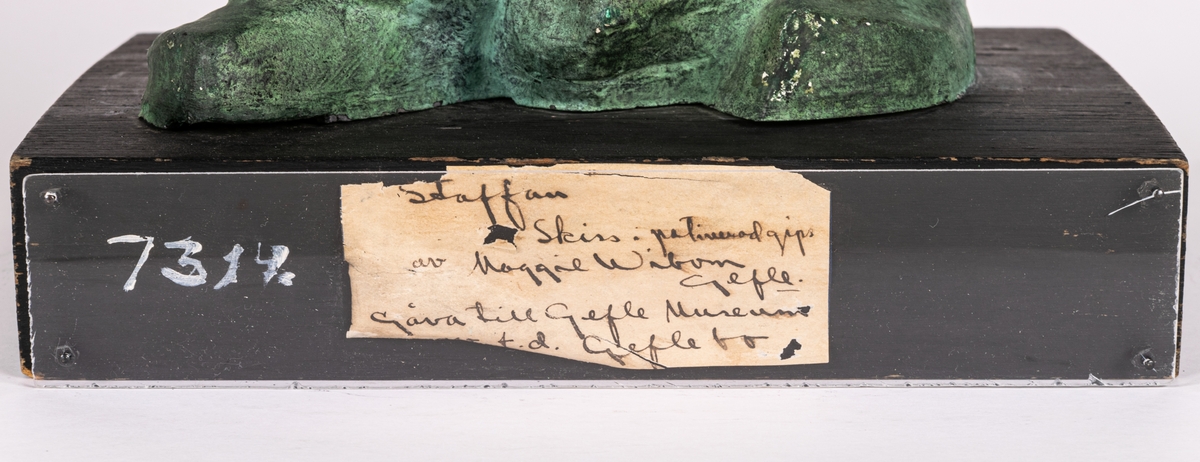 7314.
Staffan
Skiss. patinerad gips
av Maggie Wibom
Gefle.
Gåva till Gefle Museum
f.d. Geflebo